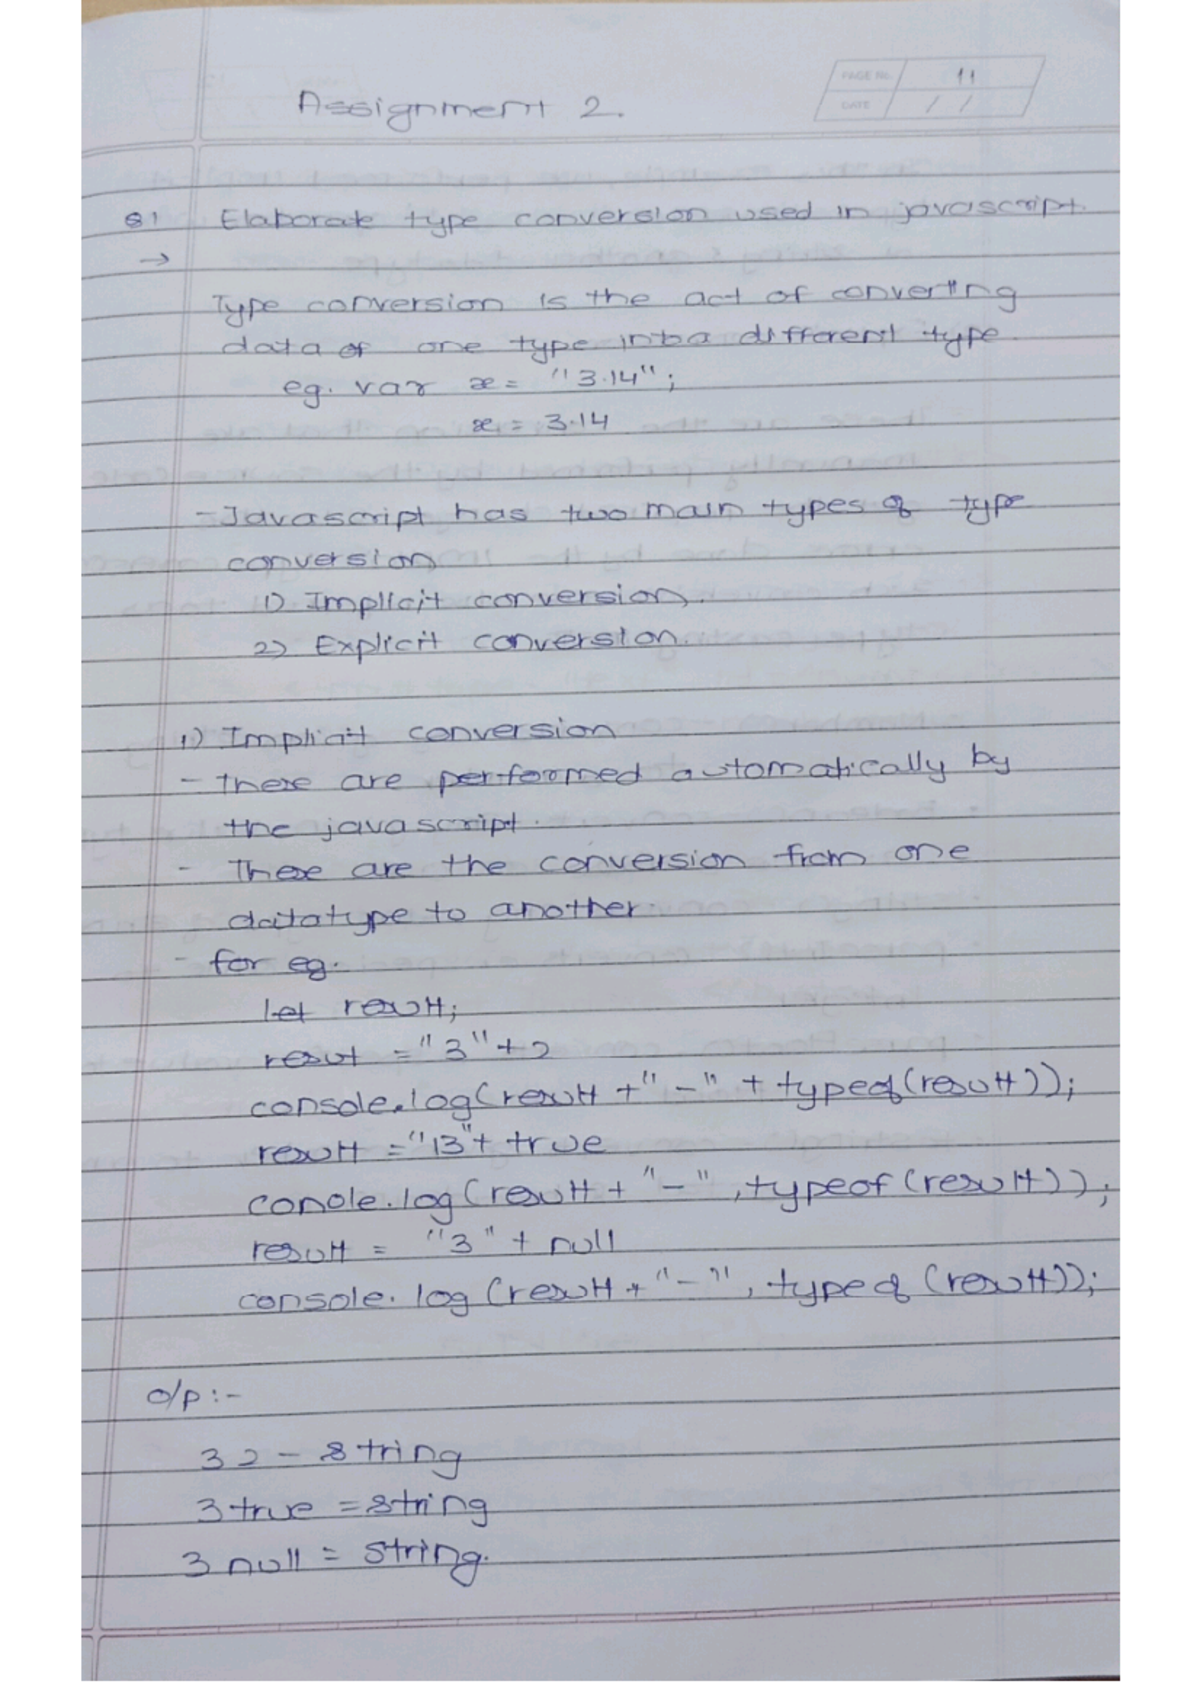 PAGE No. 11
DATE / /
Assignment 2.
Q1 Elaborate type conversion used in javascript.
→
Type conversion is the act of converting
data of one type into a different type
eg. var x = "3.14";
x = 3.14
- Javascript has two main types of type
conversion
1) Implicit conversion.
2) Explicit conversion.
1) Implicit conversion
- There are performed automatically by
the javascript.
- These are the conversion from one
datatype to another.
- for eg.
let result;
result = "3"+2
console.log(result +"-" + typeof(result));
result = "13"+ true
conole.log(result + "-", typeof(result));
result = "3" + null
console.log(result + "-", typeof(result));
o/p :-
32 - string
3 true = string
3 null = string.